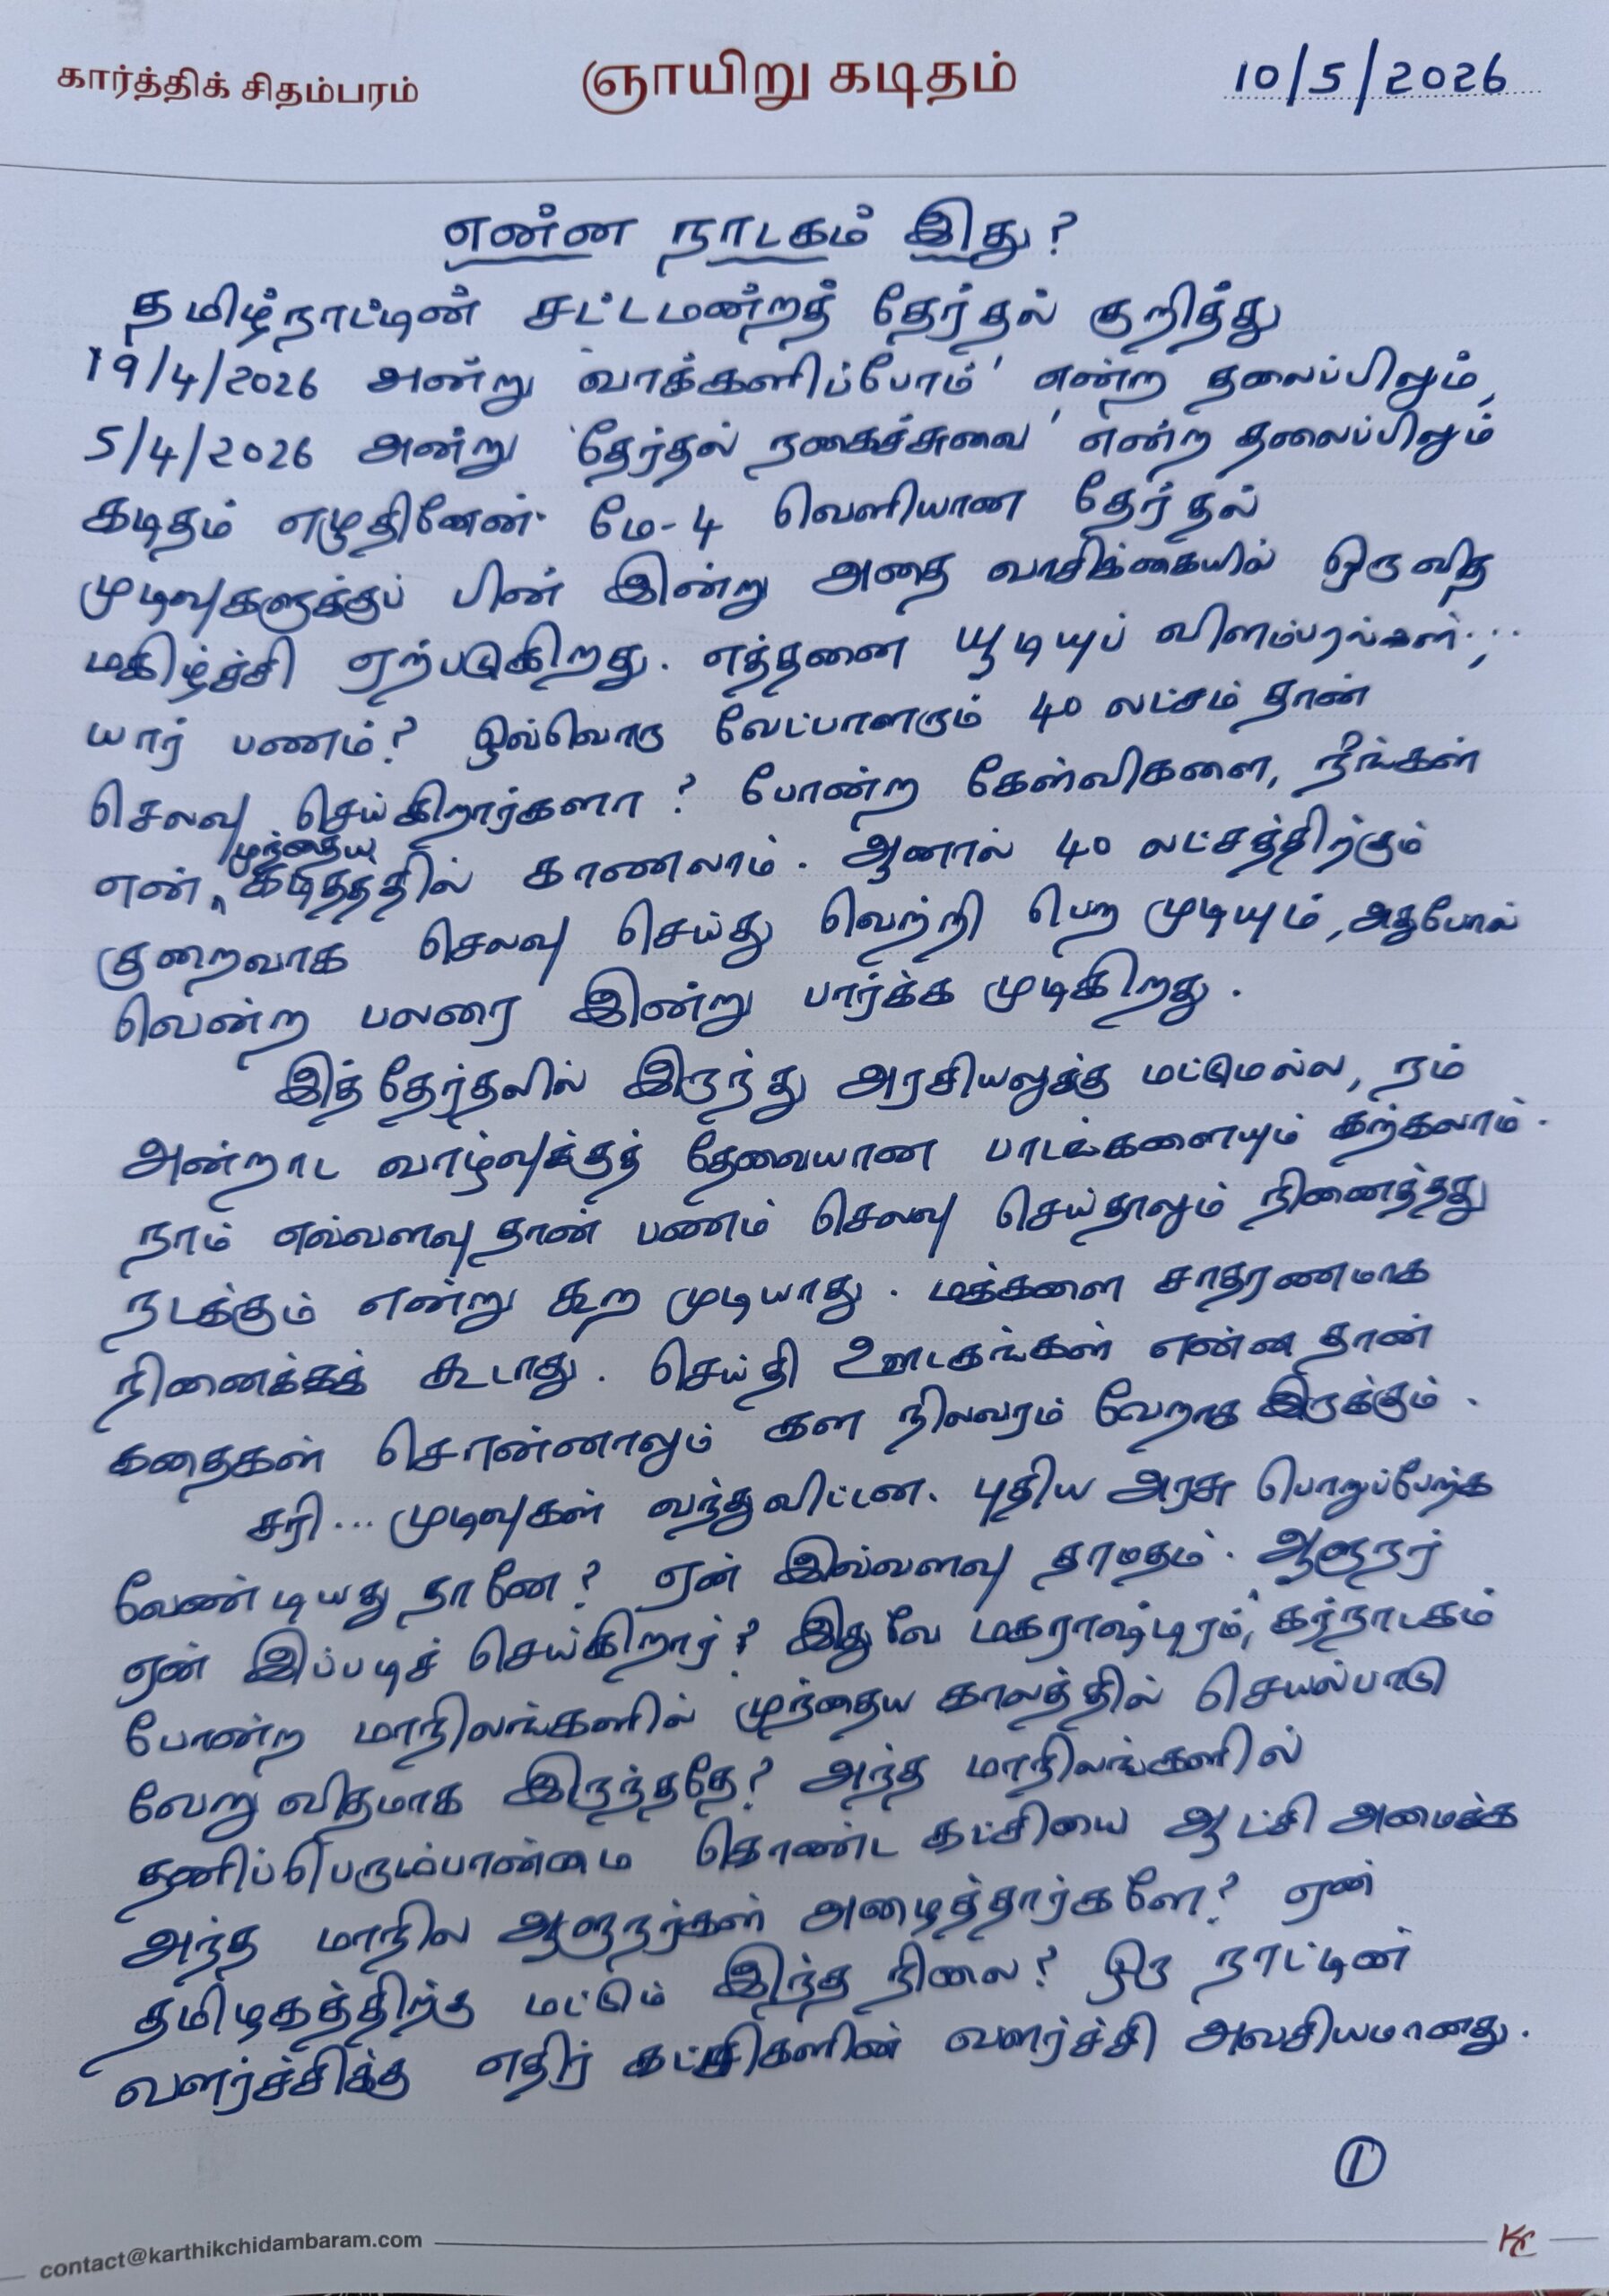 கார்த்திக் சிதம்பரம்
ஞாயிறு கடிதம்
10/5/2026
என்ன நாடகம் இது?
தமிழ்நாட்டின் சட்டமன்றத் தேர்தல் குறித்து
19/4/2026 அன்று 'வாக்களிப்போம்' என்ற தலைப்பிலும்,
5/4/2026 அன்று 'தேர்தல் நகைச்சுவை' என்ற தலைப்பிலும்
கடிதம் எழுதினேன். மே-4 வெளியான தேர்தல்
முடிவுகளுக்குப் பின் இன்று அதை வாசிக்கையில் ஒருவித
மகிழ்ச்சி ஏற்படுகிறது. எத்தனை யூடியுப் விளம்பரங்கள்...;
யார் பணம்? ஒவ்வொரு வேட்பாளரும் 40 லட்சம் தான்
செலவு செய்கிறார்களா? போன்ற கேள்விகளை, நீங்கள்
என் முந்தைய கடிதத்தில் காணலாம். ஆனால் 40 லட்சத்திற்கும்
குறைவாக செலவு செய்து வெற்றி பெற முடியும், அதுபோல்
வென்ற பலரை இன்று பார்க்க முடிகிறது.
இத் தேர்தலில் இருந்து அரசியலுக்கு மட்டுமல்ல, நம்
அன்றாட வாழ்வுக்குத் தேவையான பாடங்களையும் கற்கலாம்.
நாம் எவ்வளவு தான் பணம் செலவு செய்தாலும் நினைத்தது
நடக்கும் என்று கூற முடியாது. மக்களை சாதரணமாக
நினைக்கக் கூடாது. செய்தி ஊடகங்கள் என்ன தான்
கதைகள் சொன்னாலும் கள நிலவரம் வேறாக இருக்கும்.
சரி... முடிவுகள் வந்துவிட்டன. புதிய அரசு பொறுப்பேற்க
வேண்டியது தானே? ஏன் இவ்வளவு தாமதம். ஆளுநர்
ஏன் இப்படிச் செய்கிறார்? இதுவே மகராஷ்டிரம், கர்நாடகம்
போன்ற மாநிலங்களில் முந்தைய காலத்தில் செயல்பாடு
வேறு விதமாக இருந்ததே? அந்த மாநிலங்களில்
தனிப்பெரும்பான்மை கொண்ட கட்சியை ஆட்சி அமைக்க
அந்த மாநில ஆளுநர்கள் அழைத்தார்களே? ஏன்
தமிழகத்திற்கு மட்டும் இந்த நிலை? ஒரு நாட்டின்
வளர்ச்சிக்கு எதிர் கட்சிகளின் வளர்ச்சி அவசியமானது.
1
contact@karthikchidambaram.com
KC